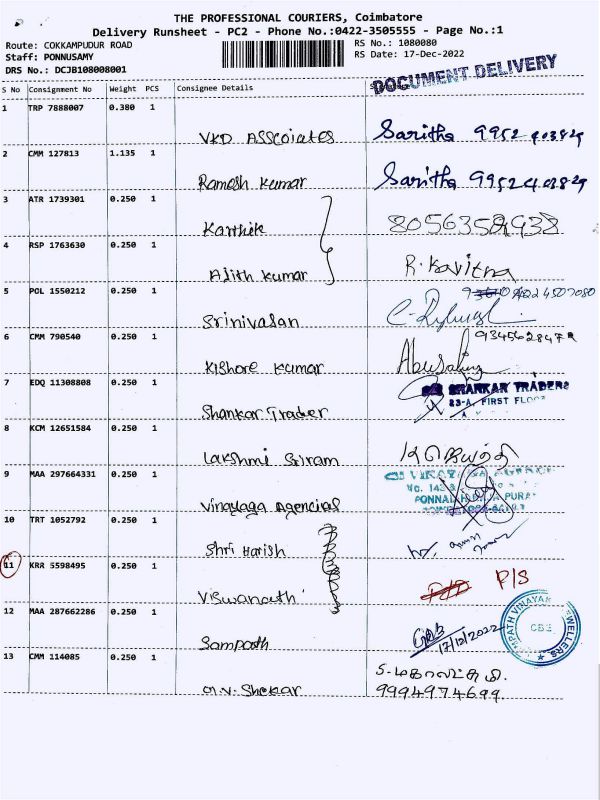 THE PROFESSIONAL COURIERS, Coimbatore
Delivery Runsheet - PC2 - Phone No.:0422-3505555 - Page No.:1
Route: COKKAMPUDUR ROAD RS No.: 1080080
Staff: PONNUSAMY RS Date: 17-Dec-2022
DRS No.: DCJB108008001
DOCUMENT DELIVERY
S No Consignment No Weight PCS Consignee Details
1 TRP 7888007 0.380 1
VKD ASSCOIATES Saritha
2 CMM 127813 1.135 1
Ramesh Kumar Saritha
3 ATR 1739301 0.250 1
Karthik
4 RSP 1763630 0.250 1
Ajith Kumar R. Kavitha
5 POL 1550212 0.250 1
Srinivasan
6 CMM 790540 0.250 1
Kishore Kumar
7 EDQ 11308808 0.250 1
SHANKAR TRADERS
83-A, FIRST FLOOR
Shankar Trader
8 KCM 12651584 0.250 1
Lakshmi Sriram
9 MAA 297664331 0.250 1
Vinayaga Agencies
10 TRT 1052792 0.250 1
Shri Harish
11 KRR 5598495 0.250 1
P/S
Viswanath
12 MAA 287662286 0.250 1
Sampath 17/12/2022
CBE
13 CMM 114085 0.250 1
M.V. Shekar 9994974699